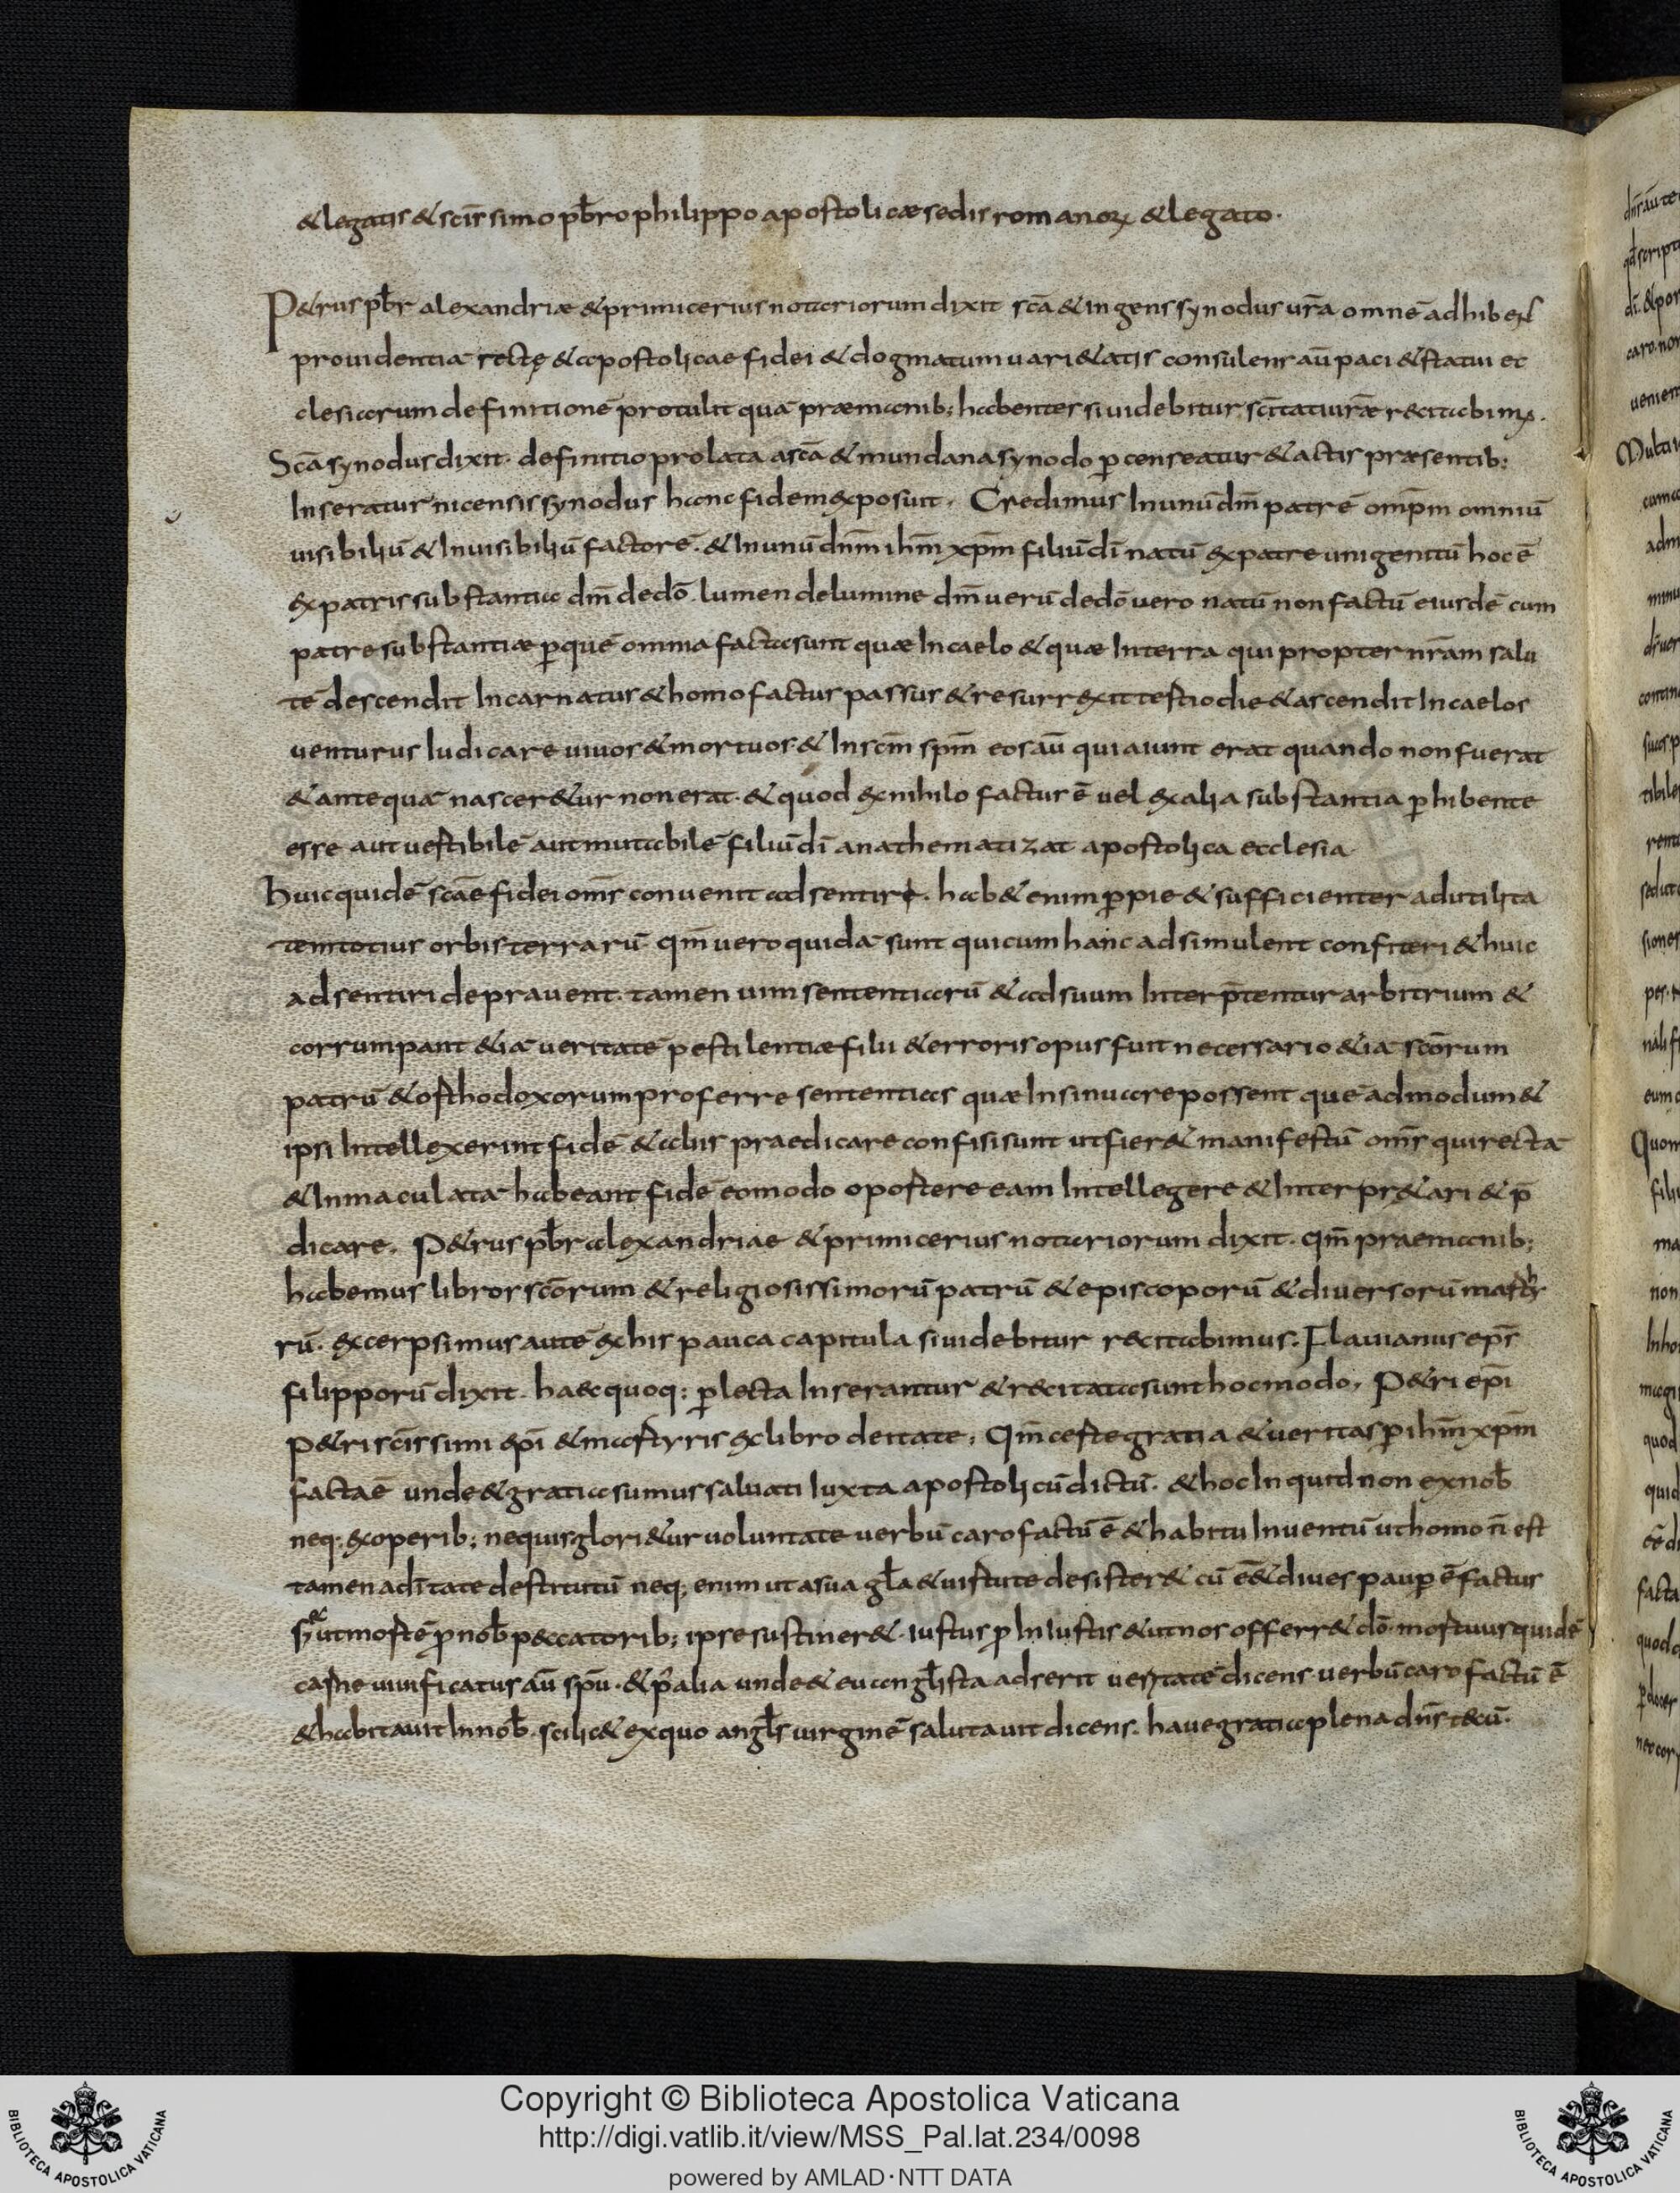 & legatis & scissimo pb̄ro philippo apostolicæ sedis romanoꝝ & legato·
P&rus pb̄r alexandriæ & primicerius notariorum dixit sc̄a & ingens synodus ur̄a omnē adhibens
prouidentiā rectę & apostolicae fidei & dogmatum uari&atis consulens aū paci & statui ec
clesiarum definitionē protulit quā præmanib; habentes si uidebitur sc̄itati urǣ recitabimꝰ.
Sc̄a synodus dixit· definitio prolata a sc̄a & mundana synodo ꝑcenseatur & actis præsentib;
Inseratur nicensis synodus hanc fidem exposuit. Credimus In unū dm̄ patrē om̄pm omniū
uisibiliū & Inuisibiliū factorē. & In unū dnm̄ ihm̄ xpm̄ filiū dī natū ex patre unigenitū hoc ē
ex patris substantia dm̄ de dō. lumen de lumine dm̄ uerū de dō uero natū non factū eiusdē cum
patre substantiæ ꝑ quē omnia facta sunt quæ In caelo & quæ In terra qui propter nr̄am salu
tē descendit Incarnatus & homo factus passus & resurrexit tertio die & ascendit In caelos
uenturus Iudicare uiuos & mortuos & In scm̄ spm̄ eos aū qui aiunt erat quando non fuerat
& antequā nascer&ur non erat· & quod ex nihilo factus ē uel ex alia substantia ꝑhibente
esse aut uertibilē aut mutabilē filiū dī anathematizat apostolica ecclesia
Huic quidē scāe fidei oms̄ conuenit adsentire. hab& enim ꝓpie & sufficienter ad utilita
tem totius orbis terrarū qm̄ uero quidā sunt qui cum hanc adsimulent confiteri & huic
adsentiri deprauent. tamen uim sententiarū & ad suum Interp̄tentur arbitrium &
corrumpant &iā ueritatē pestilentiæ filii & erroris opus fuit necessario &iā scōrum
patrū & orthodoxorum proferre sententias quæ Insinuare possent quēadmodum &
ipsi Intellexerint fidē & aliis praedicare confisi sunt ut fier& manifestū oms̄ qui rectā
& Inmaculatā habeant fidē eo modo oportere eam Intellegere & Interpr&ari & p̄
dicare. P&rus pb̄r alexandriae & primicerius notariorum dixit. qm̄ praemanib;
habemus libros scōrum & religiosissimorū patrū & episcoporū & diuersorū marthy
rū. excerpsimus autē ex his pauca capitula si uidebitur recitabimus. Flauianus eps̄
filipporū dixit. haec quoq: ꝑlecta Inserantur & recitata sunt hoc modo. P&ri epī
P&ri scissimi epī & martyris ex libro deitate. Qm̄ certe gratia & ueritas ꝑ ihm̄ xpm̄
factaē unde & gratia sumus saluati Iuxta apostolicū dictū. & hoc Inquid non ex nob̄
neq: ex operib; nequis glori&ur uoluntate uerbū caro factū ē & habitu Inuentū ut homo n̄ est
tamen a dītate destitutū neq; enim ut a sua gl̄a & uirtute desister& cū ēē& diues pauꝑ ē factus
s; ut mortē ꝓ nob̄ peccatorib; ipse sustiner&. iustus ꝓ Iniustis & ut nos offerr& dō. mortuus quidē
carne uiuificatus aū spū. & p̄ alia unde & euangl̄ista adserit ueritatē dicens uerbū caro factū ē
& habitauit In nob̄. scilic& ex quo angl̄s uirginē salutauit dicens. haue gratia plena dns̄ tecū.